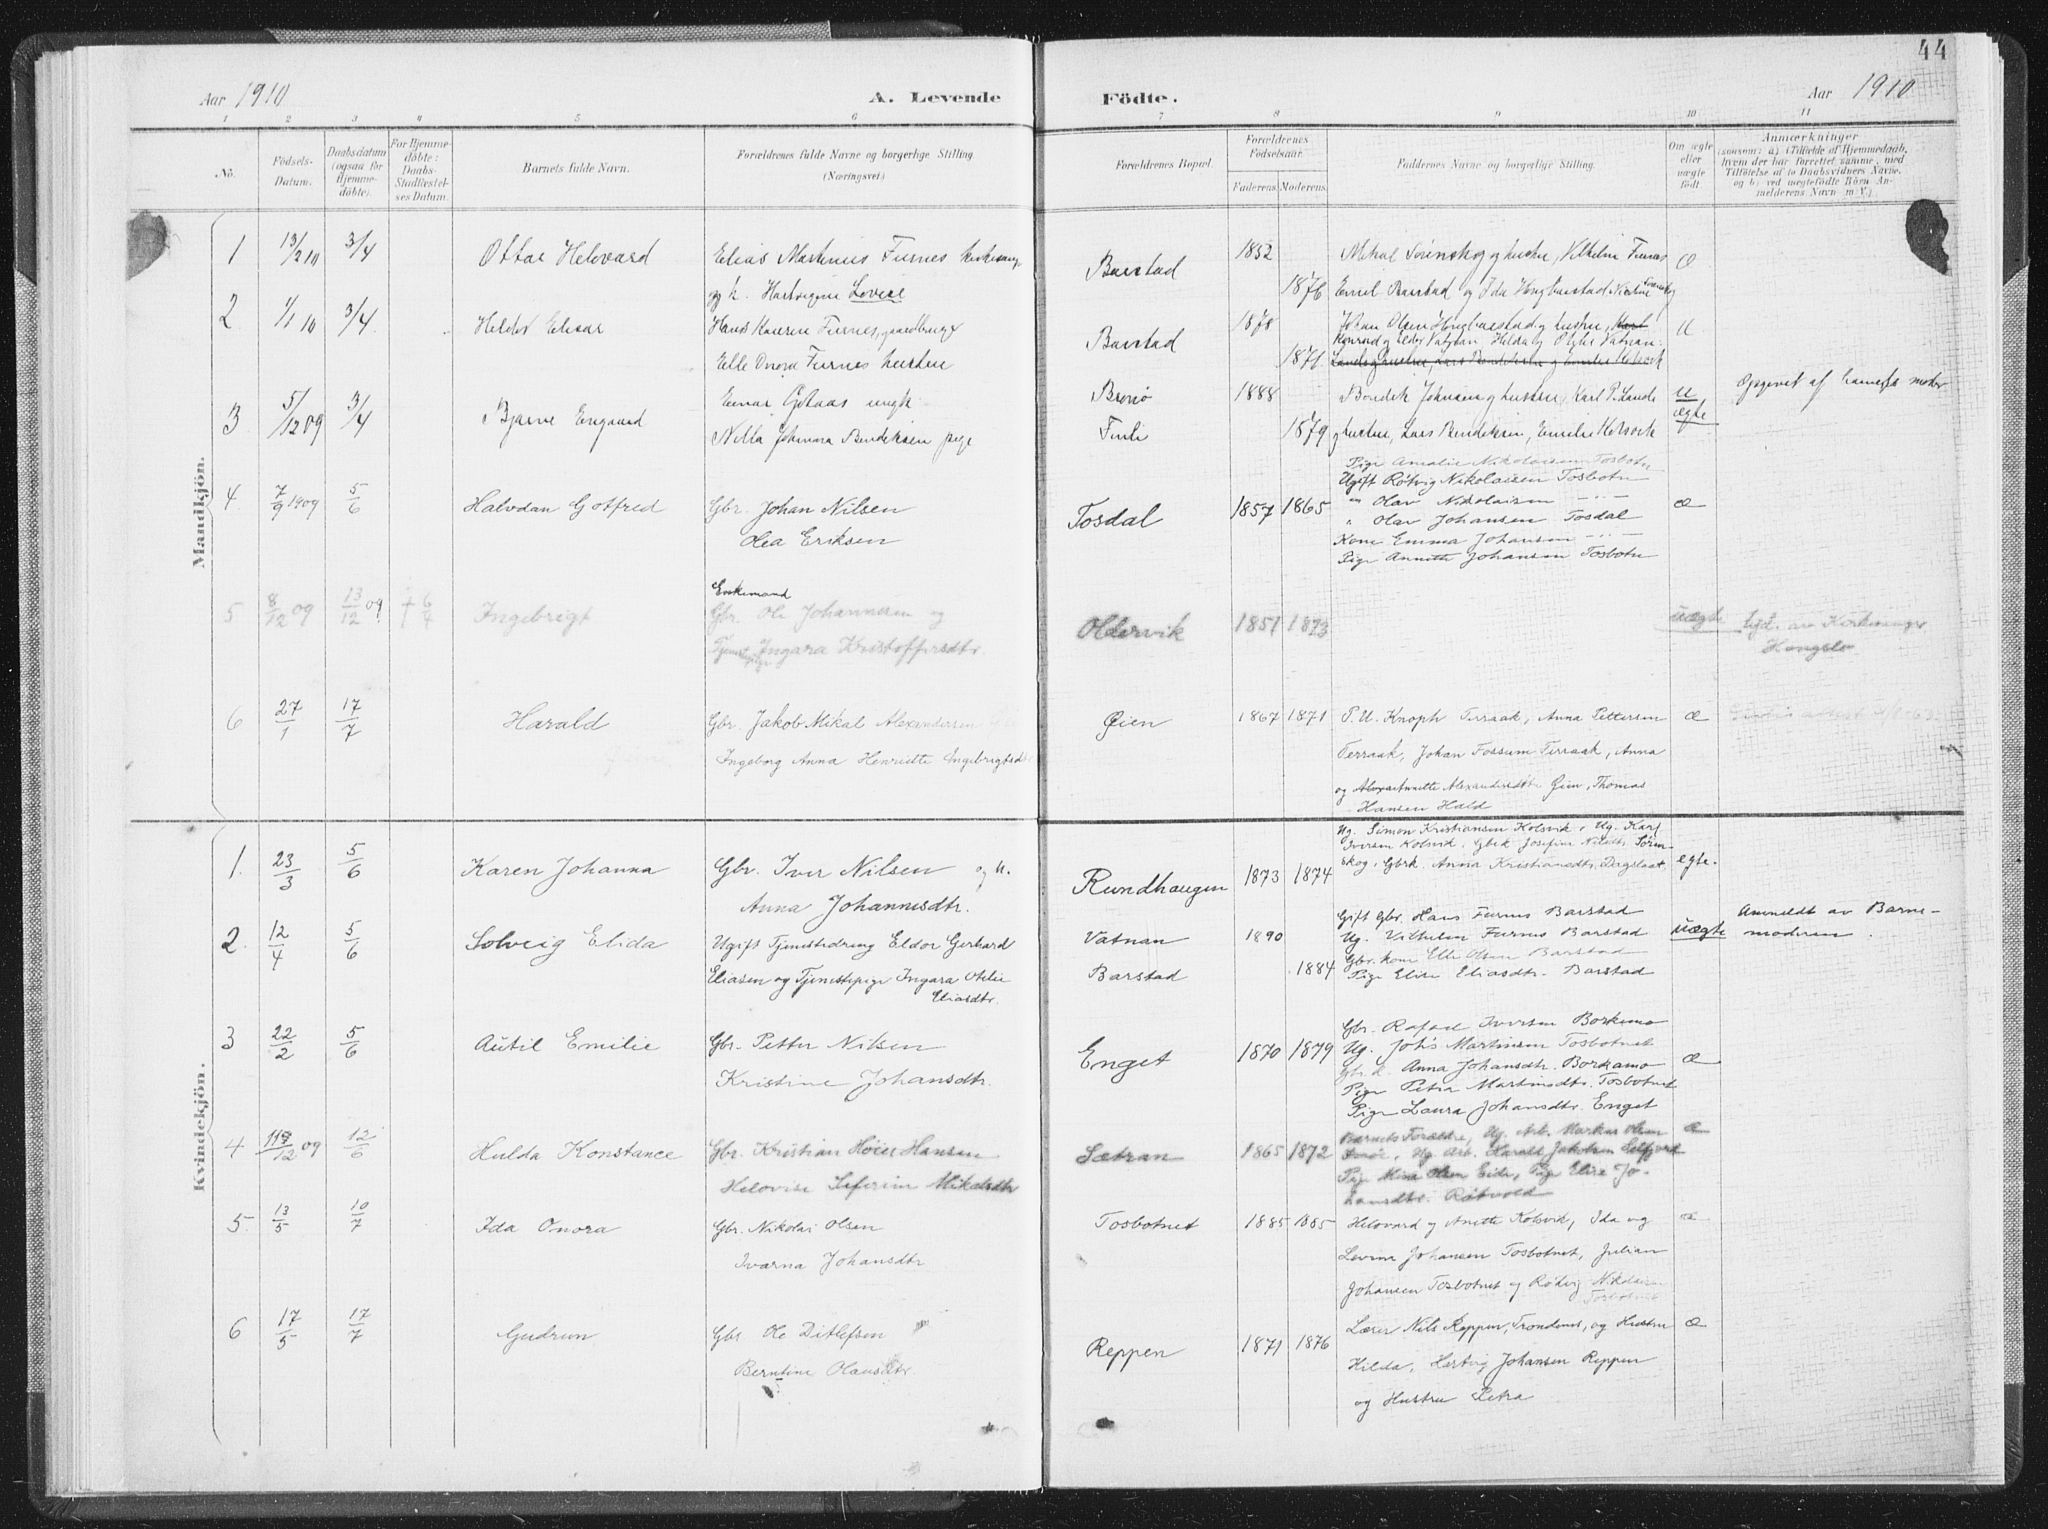 44
Aar 1910
A. Levende
Födte.
Aar 1910
1 2 3 4 5 6 7 8 9 10 11
No.
Födsels-
Datum.
Daabsdatum
(ogsaa for
Hjemme-
döbte).
For Hjemme-
döbte:
Daabs-
Stadfæstel-
ses Datum.
Barnets fulde Navn.
Forældrenes fulde Navne og borgerlige Stilling
(Næringsvei)
Forældrenes Bopæl.
Forældrenes
Födselsaar
Faderens. Moderens.
Faddernes Navne og borgerlig Stilling.
Om ægte
eller
uægte
födt
Anmærkninger
(saasom: a) i Tilfælde af Hjemmedaab,
hvem der har forrettet samme, med
Tilföielse af to Daabsvidners Navne,
og b) ved uægtefödte Börn An-
melderens Navn m. V.)
Mandkjön.
1 13/2 10 3/4 Ottar Helovard Elias Martinus Furnes kirkesang
og h. Hartvigine Lovise
Barstad 1852 1876
Mikal Sörenskog og hustru, Vilhelm Furnes
Emil Barstad og Ida Hongbarstad
2 1/1 10 3/4 Heldor Elisar Hans Kaurin Furnes, gaardbruger
Elle Onora Furnes hustru
Barstad 1878 1871
Johan Olsen Hongbarstad og hustru,
Konrad og Eldor Vatnan Hilda og Vatnan
3 5/12 09 3/4 Bjarne Engaard Einar ungk.
Nella Johnara Bendiksen pige
Brönö 1888
Finli 1879
Bendik Johnsen og hustru, Karl P. Lande
og hustru, Lars Bendiksen, Emelie Kolsvik
u
ægte
Opgivet af barnets moder
4. 7/9 1909 5/6 Halvdan Gotfred Gbr. Johan Nilsen
Olea Eriksen
Tosdal 1857 1865
Pige Amalie Nikolaisen Tosbotn
Ugift Rötvig Nikolaisen Tosbotn
" Olav Nikolaisen
" Olav Johansen Tosdal
Kone Emma Johansen
Pige Annette Johansen Tosbotn
æ
5 8/12 09 13/12 09 † 6/4 Ingebrigt
Enkemand
Gbr. Ole Johannesen og
Tjenestepige Ingara Kristoffersdtr.
Oldervik 1851 1893
uægte
av Kirkesanger
6 27/1 17/7 Harald Gbr. Jakob Mikal Alexandersen
Ingeborg Anna Henriette Ingebrigtsd
Öien 1867 1871
P. U. Knoph Terraak, Anna Pettersen
Terraak, Johan Fossum Terraak, Anna
og Alexandersdtr Öien, Thomas
Hansen Hald
æ
Kvindekjön.
1. 23/3 5/6 Karen Johanna Gbr. Iver Nilsen og h.
Anna Johannesdtr.
Rundhaugen 1873 1874
Ug. Simon Kristiansen Kolsvik, Ug. Karl
Iversen Kolsvik, Gbrk Josefine Nilsdtr Sören-
skog, Gbrk. Anna Kristiansdtr.
egte.
2. 12/4 5/6 Solveig Elida Ugift Tjenestedreng Eldor Gerhard
Eliasen og Tjenestepige Ingara Otilie
Eliasdtr.
Vatnan 1890
Barstad 1884
Gift Gbr. Hans Furnes Barstad
Ug. Vilhelm Furnes Barstad
Gbr. kone Elle Olsen Barstad
Pige Elise Eliasdtr. Barstad
uægte
Anmeldt av Barne-
moderen.
3 22/2 5/6 Autil Emilie Gbr. Petter Nilsen
Kristine Johansdtr.
Enget 1870 1879
Gbr. Rafael Iversen Borkamo
Ug. Johs Martinsen Tosbotnet
Gbr. k. Anna Johansdtr. Borkamo
Pige Petra Martinsdtr. Tosbotnet
Pige Laura Johansdtr. Enget
æ
4 12 09 12/6 Hulda Konstance Gbr. Kristian Höier Hansen
Helovise Seferine Mikalsdtr
Sætran 1865 1872
Barnets Forældre, Ug. Arb. Markus Olsen
Ug. Arb. Harald Jakobsen
Pige Mina Olsen Eide, Pige Elise Jo-
hansdtr. Røtvold
æ
5. 13/5 10/7 Ida Onora Gbr. Nikolai Olsen
Ivarna Johansdtr
Tosbotnet 1885 1885
Helovard og Anette Kolsvik, Ida og
Levina Johansen Tosbotnet, Julian
Johansen Tosbotnet og Rötvig Nikolaisen
Tosbotnet
æ
6 17/5 17/7 Gudrun Gbr Ole Ditlefsen
Berntine Olausdtr.
Reppen 1871 1876
Lærer Nils Reppen, Trondenes, og Hustru
Hilda, Hertvig Johansen Reppen
og Hustru Petra
æ